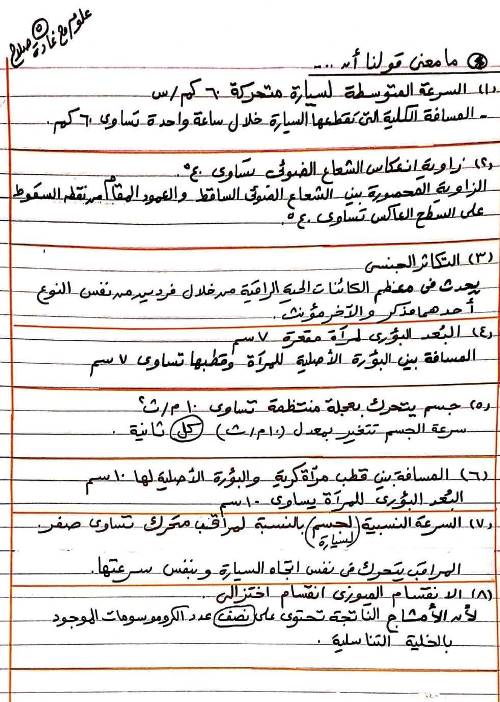 علوم مع غادة صلاح ٥
ما معنى قولنا أن ....
(١) السرعة المتوسطة لسيارة متحركة ٦٠ كم/س
- المسافة الكلية التى تقطعها السيارة خلال ساعة واحدة تساوى ٦٠ كم.
(٢) زاوية انعكاس الشعاع الضوئى تساوى ٤٠°.
الزاوية المحصورة بين الشعاع الضوئى الساقط والعمود المقام من نقطة السقوط
على السطح العاكس تساوى ٤٠°
(٣) التكاثر الجنسى
يحدث فى معظم الكائنات الحية الراقية من خلال فردين من نفس النوع
أحدهما مذكر والآخر مؤنث.
(٤) البُعد البؤرى لمرآة مقعرة ٧ سم
المسافة بين البؤرة الأصلية للمرآة وقطبها تساوى ٧ سم
(٥) جسم يتحرك بعجلة منتظمة تساوى ١٠ م/ث٢
سرعة الجسم تتغير بمعدل (١٠ م/ث) كل ثانية.
(٦) المسافة بين قطب مرآة كرية والبؤرة الأصلية لها ١٠ سم
البُعد البؤرى للمرآة يساوى ١٠ سم
(٧) السرعة النسبية (لجسم) بالنسبة لمراقب متحرك تساوى صفر.
لسيارة
المراقب يتحرك فى نفس اتجاه السيارة وبنفس سرعتها.
(٨) الانقسام الميوزى انقسام اختزالى.
لأن الأمشاج الناتجة تحتوى على نصف عدد الكروموسومات الموجود
بالخلية التناسلية.